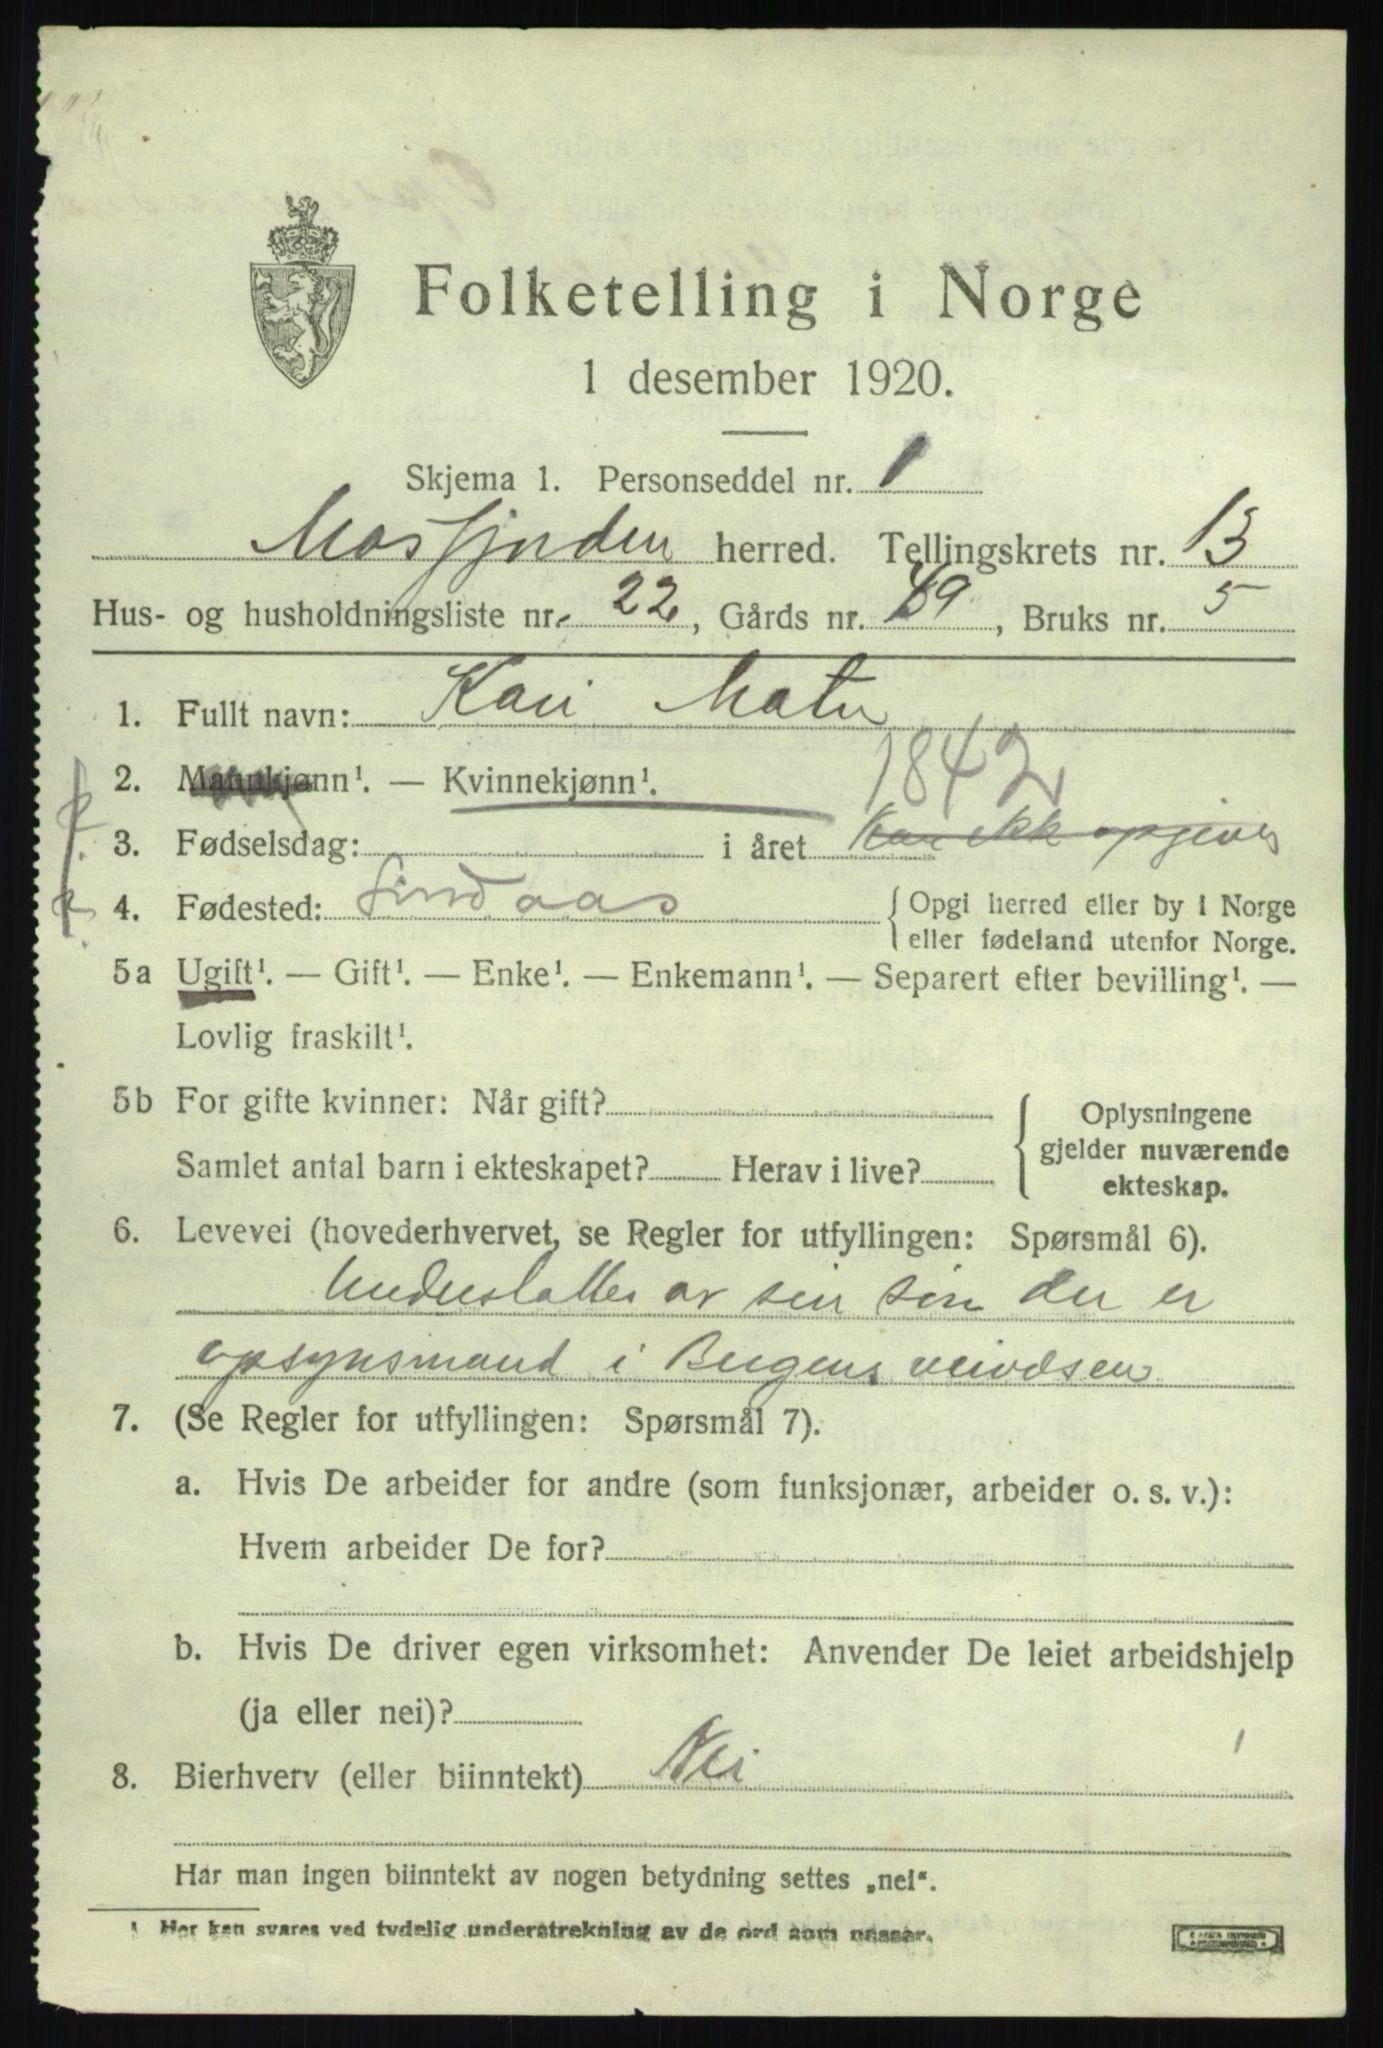 Folketelling i Norge
1 desember 1920.
Skjema 1. Personseddel nr. 1
Masfjorden herred. Tellingskrets nr. 13
Hus- og husholdningsliste nr. 22, Gårds nr. 49, Bruks nr. 5
1. Fullt navn: Kari Matre
2. Mannkjønn¹. — Kvinnekjønn¹.
1842
3. Fødselsdag: i året Kan ikke opgives
4. Fødested: Lindaas { Opgi herred eller by i Norge
eller fødeland utenfor Norge.
5a Ugift¹. — Gift¹. — Enke¹. — Enkemann¹. — Separert efter bevilling¹. —
Lovlig fraskilt¹.
5b For gifte kvinner: Når gift? { Oplysningene
gjelder nuværende
Samlet antal barn i ekteskapet? Herav i live?
ekteskap.
6. Levevei (hovederhvervet, se Regler for utfyllingen: Spørsmål 6).
Understøttes av sin søn der er
opsynsmand i Bergens veivæsen
7. (Se Regler for utfyllingen: Spørsmål 7).
a. Hvis De arbeider for andre (som funksjonær, arbeider o. s. v.):
Hvem arbeider De for?
b. Hvis De driver egen virksomhet: Anvender De leiet arbeidshjelp
(ja eller nei)?
8. Bierhverv (eller biinntekt) Nei
Har man ingen biinntekt av nogen betydning settes „nei“.
¹ Her kan svares ved tydelig understrekning av de ord som passer.